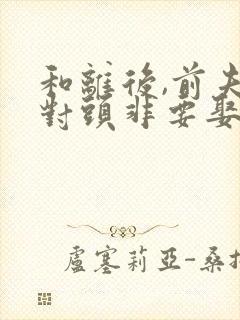 和離後,前夫
對頭非要娶
盧塞莉亞-桑